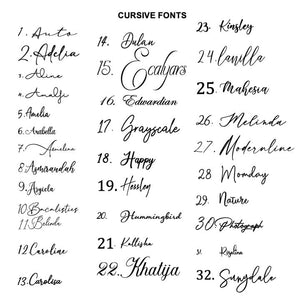 CURSIVE FONTS
1. Auto
2. Adelia
3. Adine
4. Amalfi
5. Amelia
6. Arabella
7. Amelina
8. Asmirandah
9. Argiela
10. Bacalisties
11. Belinda
12. Caroline
13. Carolisa
14. Dulan
15. Ecalyars
16. Edwardian
17. Grayscale
18. Happy
19. Hossley
20. Hummingbird
21. Kallisha
22. Khatija
23. Kinsley
24. Lavilla
25. Mahesia
26. Melinda
27. Modernline
28. Monday
29. Nature
30. Photograph
31.
32. Sunydale